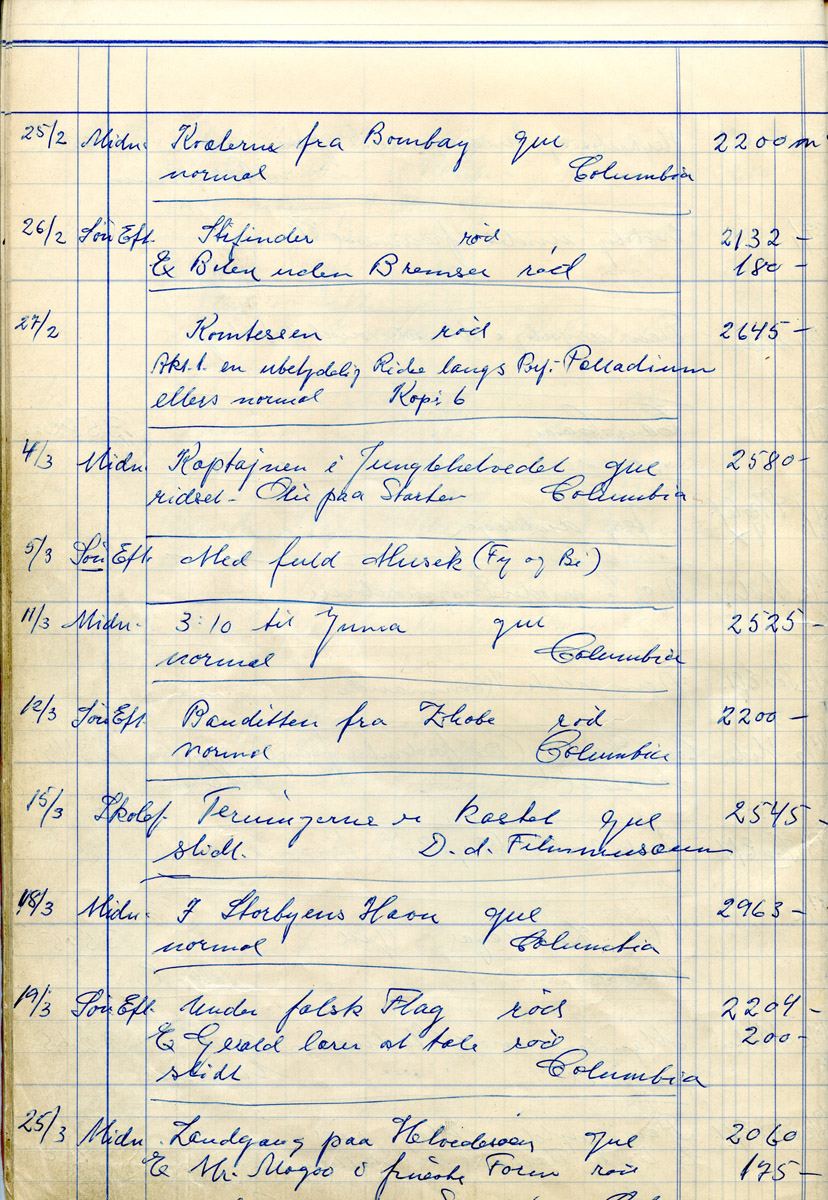 25/2 Midn. Kvalerne fra Bombay gul 2200 m
normal Columbia
26/2 Søn Eft. Stifinder rød 2132 -
E Bilen uden Bremser rød 180 -
27/2 Komtessen rød 2645 -
Akt. 1. en ubetydelig Ridse langs Prf:- Palladium
ellers normal Kopi 6
4/3 Midn. Kaptajnen i Junglehelvedet gul 2580 -
ridset - Olie paa Starten Columbia
5/3 Søn Eft. Med fuld Musik (Fy og Bi)
11/3 Midn. 3:10 til Yuma gul 2525 -
normal Columbia
12/3 Søn Eft. Banditten fra Zhobe rød 2200 -
normal Columbia
15/3 Skolef. Terningerne er kastet gul 2545 -
slidt. D.d. Filmmuseum
18/3 Midn. I Storbyens Havn gul 2963 -
normal Columbia
19/3 Søn Eft. Under falsk Flag rød 2204 -
E Gerald lærer at tale rød 200 -
slidt Columbia
25/3 Midn. Landgang paa Helvedesøen gul 2060
E Mr. Magoo i fineste Form rød 175 -